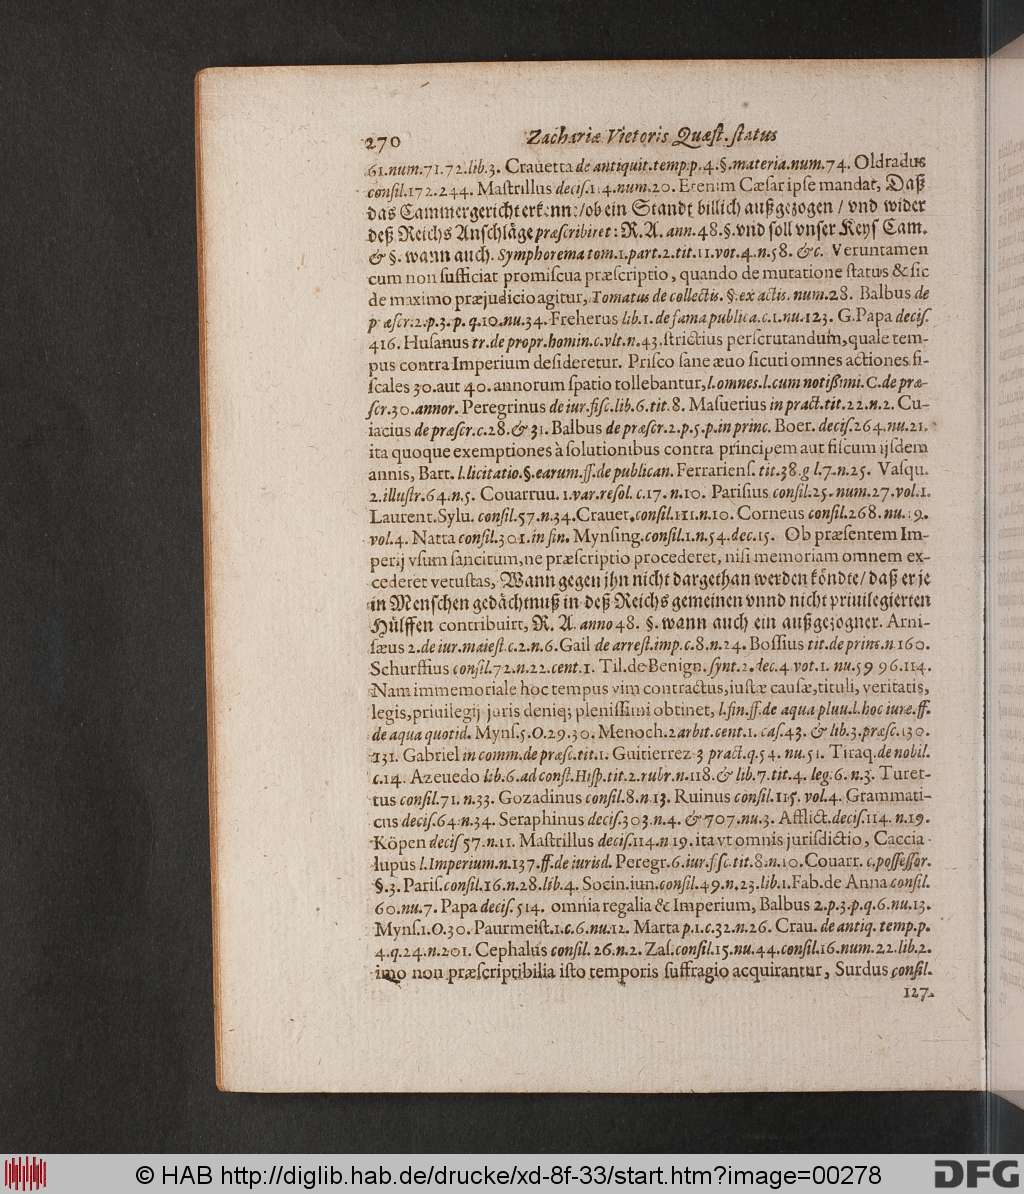 270 Zachariæ Vietoris Quæst. status
61.num.71.72.lib.3. Crauetta de antiquit.temp.p.4.§.materia.num.74. Oldradus
consil.172.244. Mastrillus decis.114.num.20. Etenim Cæsar ipse mandat, Daß
das Cammergericht erkenne/ob ein Standt billich außgezogen / vnd wider
deß Reichs Anschläge præscribiret: R.A. ann.48.§.vnd soll vnser Keys Cam.
& §. wann auch. Symphorema tom.1.part.2.tit.11.vot.4.n.58. &c. Veruntamen
cum non sufficiat promiscua præscriptio, quando de mutatione status & sic
de maximo præjudicio agitur, Tomatus de collectis. §.ex actis. num.28. Balbus de
præscr.2.p.3.p.q.10.nu.34. Freherus lib.1.de fama publica.c.1.nu.123. G.Papa decis.
416. Husanus tr.de propr.homin.c.vlt.n.43. strictius perscrutandum, quale tem-
pus contra Imperium desideretur. Prisco sane æuo sicuti omnes actiones fi-
scales 30.aut 40.annorum spatio tollebantur, l.omnes.l.cum notißimi.C.de præ-
scr.30.annor. Peregrinus de iur.fisc.lib.6.tit.8. Masuerius in pract.tit.22.n.2. Cu-
iacius de præscr.c.28.& 31. Balbus de præscr.2.p.5.p.in princ. Boer. decis.264.nu.21.
ita quoque exemptiones à solutionibus contra principem aut fiscum ijsdem
annis, Bart. l.licitatio.§.earum.ff.de publican. Ferrariens. tit.38.gl.7.n.25. Vasqu.
2.illustr.64.n.5. Couarruu.1.var.resol.c.17.n.10. Parisius consil.25.num.27.vol.1.
Laurent.Sylu. consil.57.n.34. Crauet.consil.111.n.10. Corneus consil.268.nu.19.
vol.4. Natta consil.301.in fin. Mynsing.consil.1.n.54.dec.15. Ob præsentem Im-
perij vsum sancitum, ne præscriptio procederet, nisi memoriam omnem ex-
cederet vetustas, Wann gegen jhn nicht dargethan werden köndte/ daß er je
in Menschen gedächtnuß in deß Reichs gemeinen vnnd nicht priuilegierten
Hülffen contribuirt, R. A. anno 48. §. wann auch ein außgezogner. Arni-
sæus 2.de iur.maiest.c.2.n.6. Gail de arrest.imp.c.8.n.24. Bossius tit.de princ.n.160.
Schurffius consil.72.n.22.cent.1. Til.de Benign. synt.2.dec.4.vot.1. nu.59 96.114.
Nam immemoriale hoc tempus vim contractus, iustæ causæ, tituli, veritatis,
legis, priuilegij juris deniq; plenissimi obtinet, l.fin.ff.de aqua pluu.l.hoc iure.ff.
de aqua quotid. Myns.5.O.29.30. Menoch.2.arbit.cent.1. cas.43. & lib.3.præsc.130.
131. Gabriel in comm.de præsc.tit.1. Guitierrez 3 pract.q.54. nu.51. Tiraq.de nobil.
c.14. Azeuedo lib.6.ad const.Hisp.tit.2.rubr.n.118.& lib.7.tit.4. leg.6.n.3. Turet-
tus consil.71.n.33. Gozadinus consil.8.n.13. Ruinus consil.115. vol.4. Grammati-
cus decis.64.n.34. Seraphinus decis.303.n.4. & 707.nu.3. Afflict.decis.114.n.19.
Köpen decis 57.n.11. Mastrillus decis.114.n 19. ita vt omnis jurisdictio, Caccia-
lupus l.Imperium.n.137.ff.de iurisd. Peregr.6.iur.fisc.tit.8.n.10. Couarr. c.possessor.
§.3. Paris.consil.16.n.28.lib.4. Socin.iun.consil.49.n.23.lib.1. Fab.de Anna consil.
60.nu.7. Papa decis.514. omnia regalia & Imperium, Balbus 2.p.3.p.q.6.nu.13.
Myns.1.O.30. Paurmeist.1.c.6.nu.12. Marta p.1.c.32.n.26. Crau. de antiq.temp.p.
4.q.24.n.201. Cephalus consil.26.n.2. Zas.consil.15.nu.44.consil.16.num.22.lib.2.
imo non præscriptibilia isto temporis suffragio acquirantur, Surdus consil.
127.
© HAB http://diglib.hab.de/drucke/xd-8f-33/start.htm?image=00278
DFG